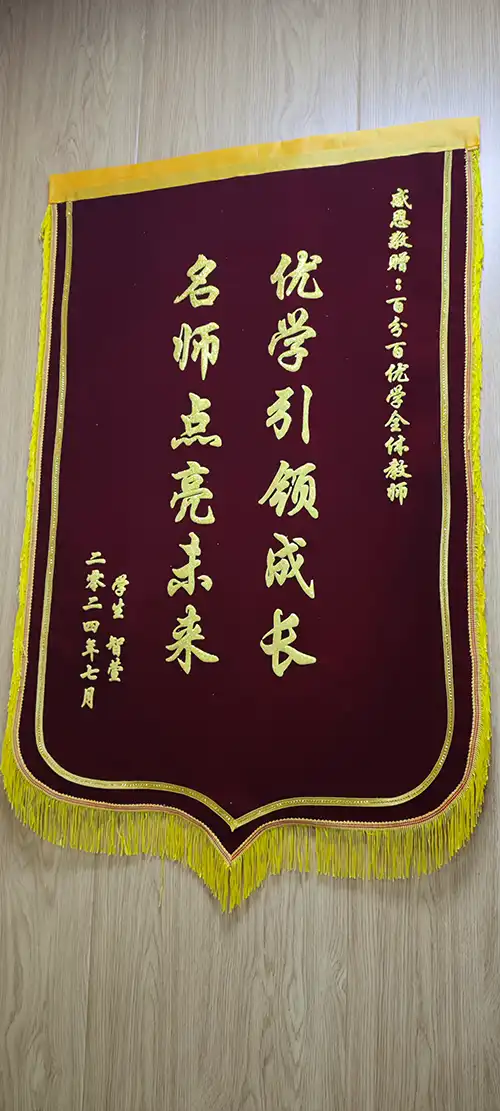 感恩敬赠：百分百优学全体教师
优学引领成长
名师点亮未来
学生 智萱
二零二四年七月